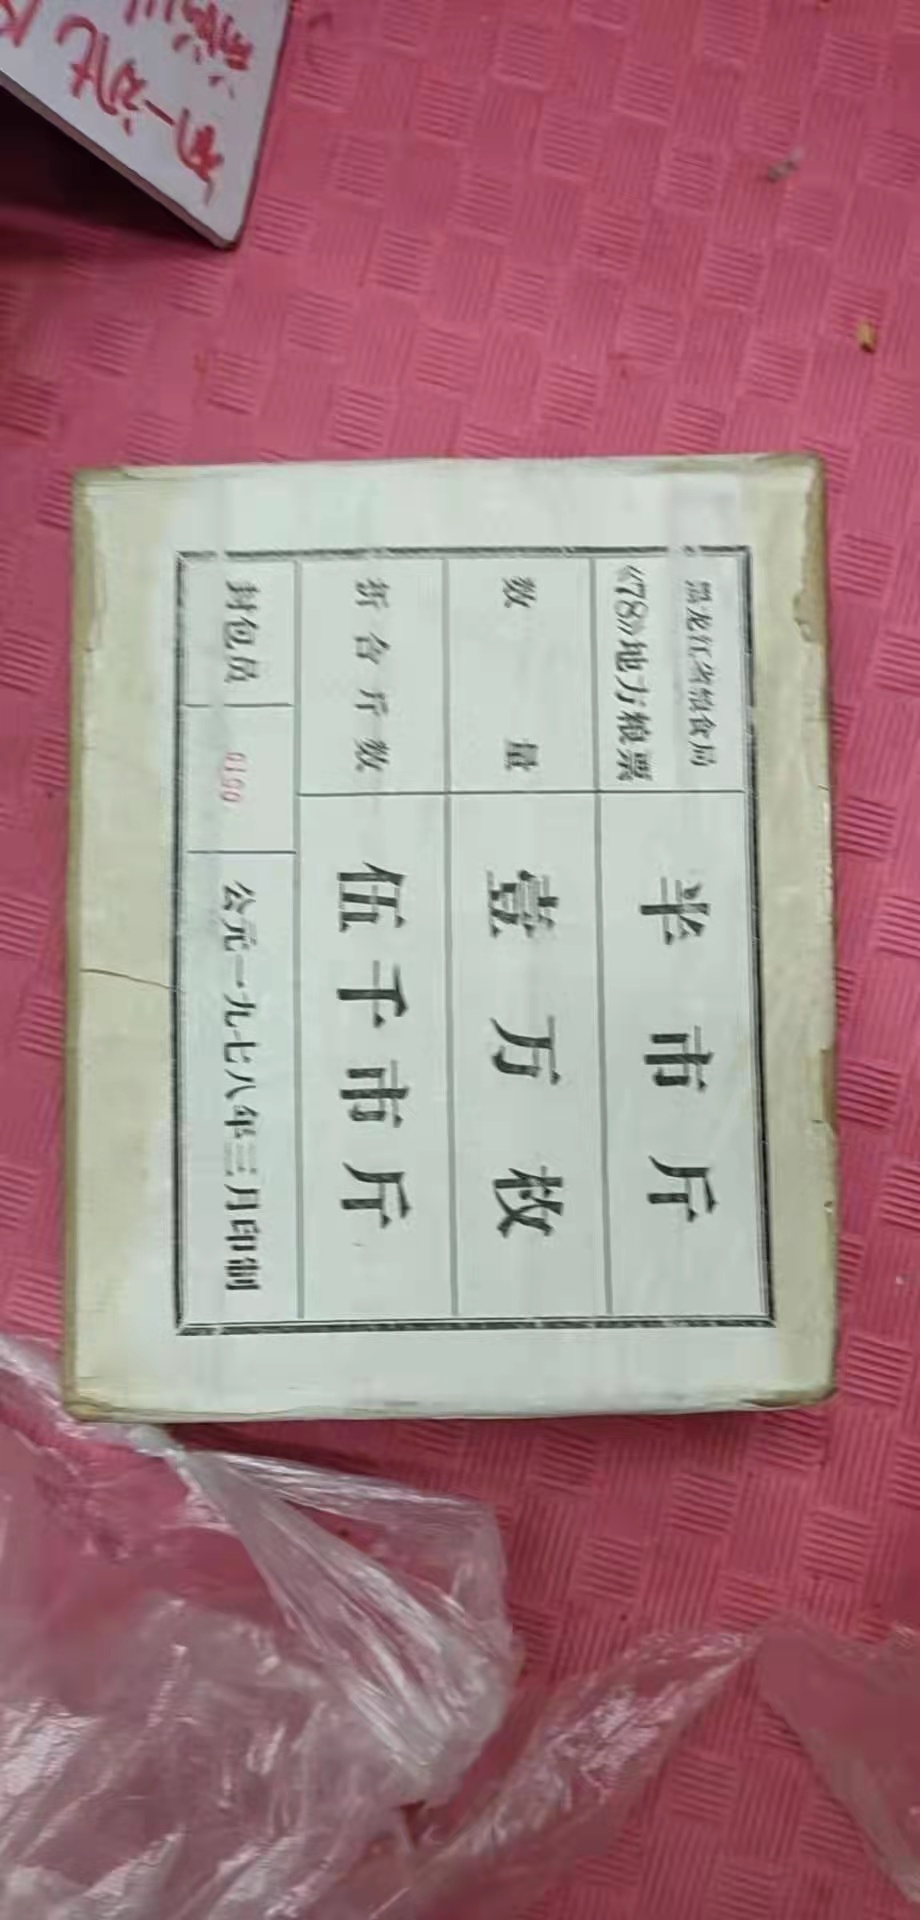 黑龙江省粮食局
《78》地方粮票 半市斤
数量 壹万枚
折合斤数 伍千市斤
封包员 0190 公元一九七八年三月印制